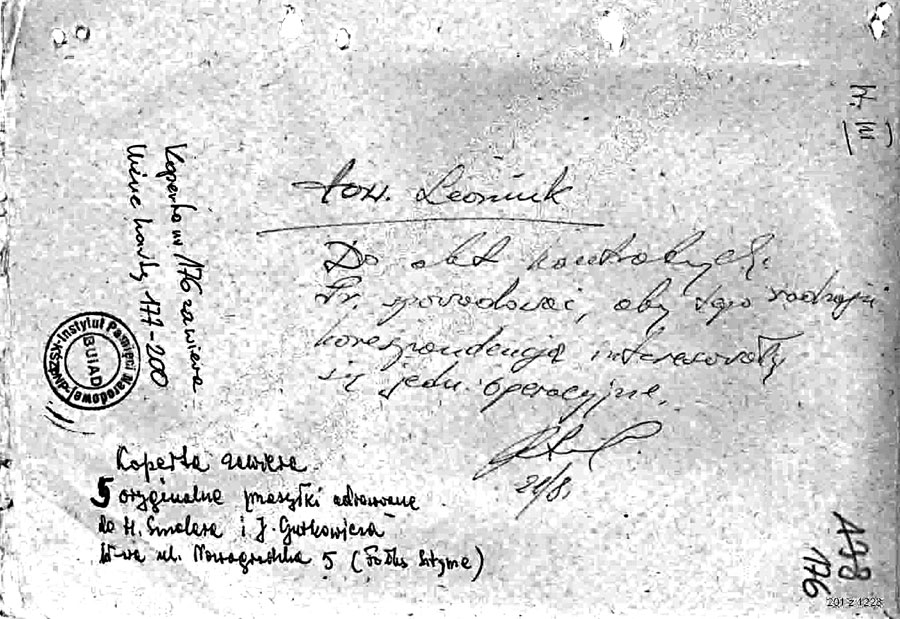 W. III
tow. Leoniuk
Do akt kontrolnych.
Pr. spowodować, aby tego rodzaju
korespondencją interesowały
się jedn. operacyjne.
21/8.
Koperta nr 176 zawiera
177-200
Instytut Pamięci Narodowej-KŚZpNP
BUIAD
Koperta zawiera
5 oryginalne przesyłki adresowane
do H. Smolara i J. Gutkowicza
W-wa ul. Nowogrodzka 5 (Fołks Sztyme)
176
201 z 1228